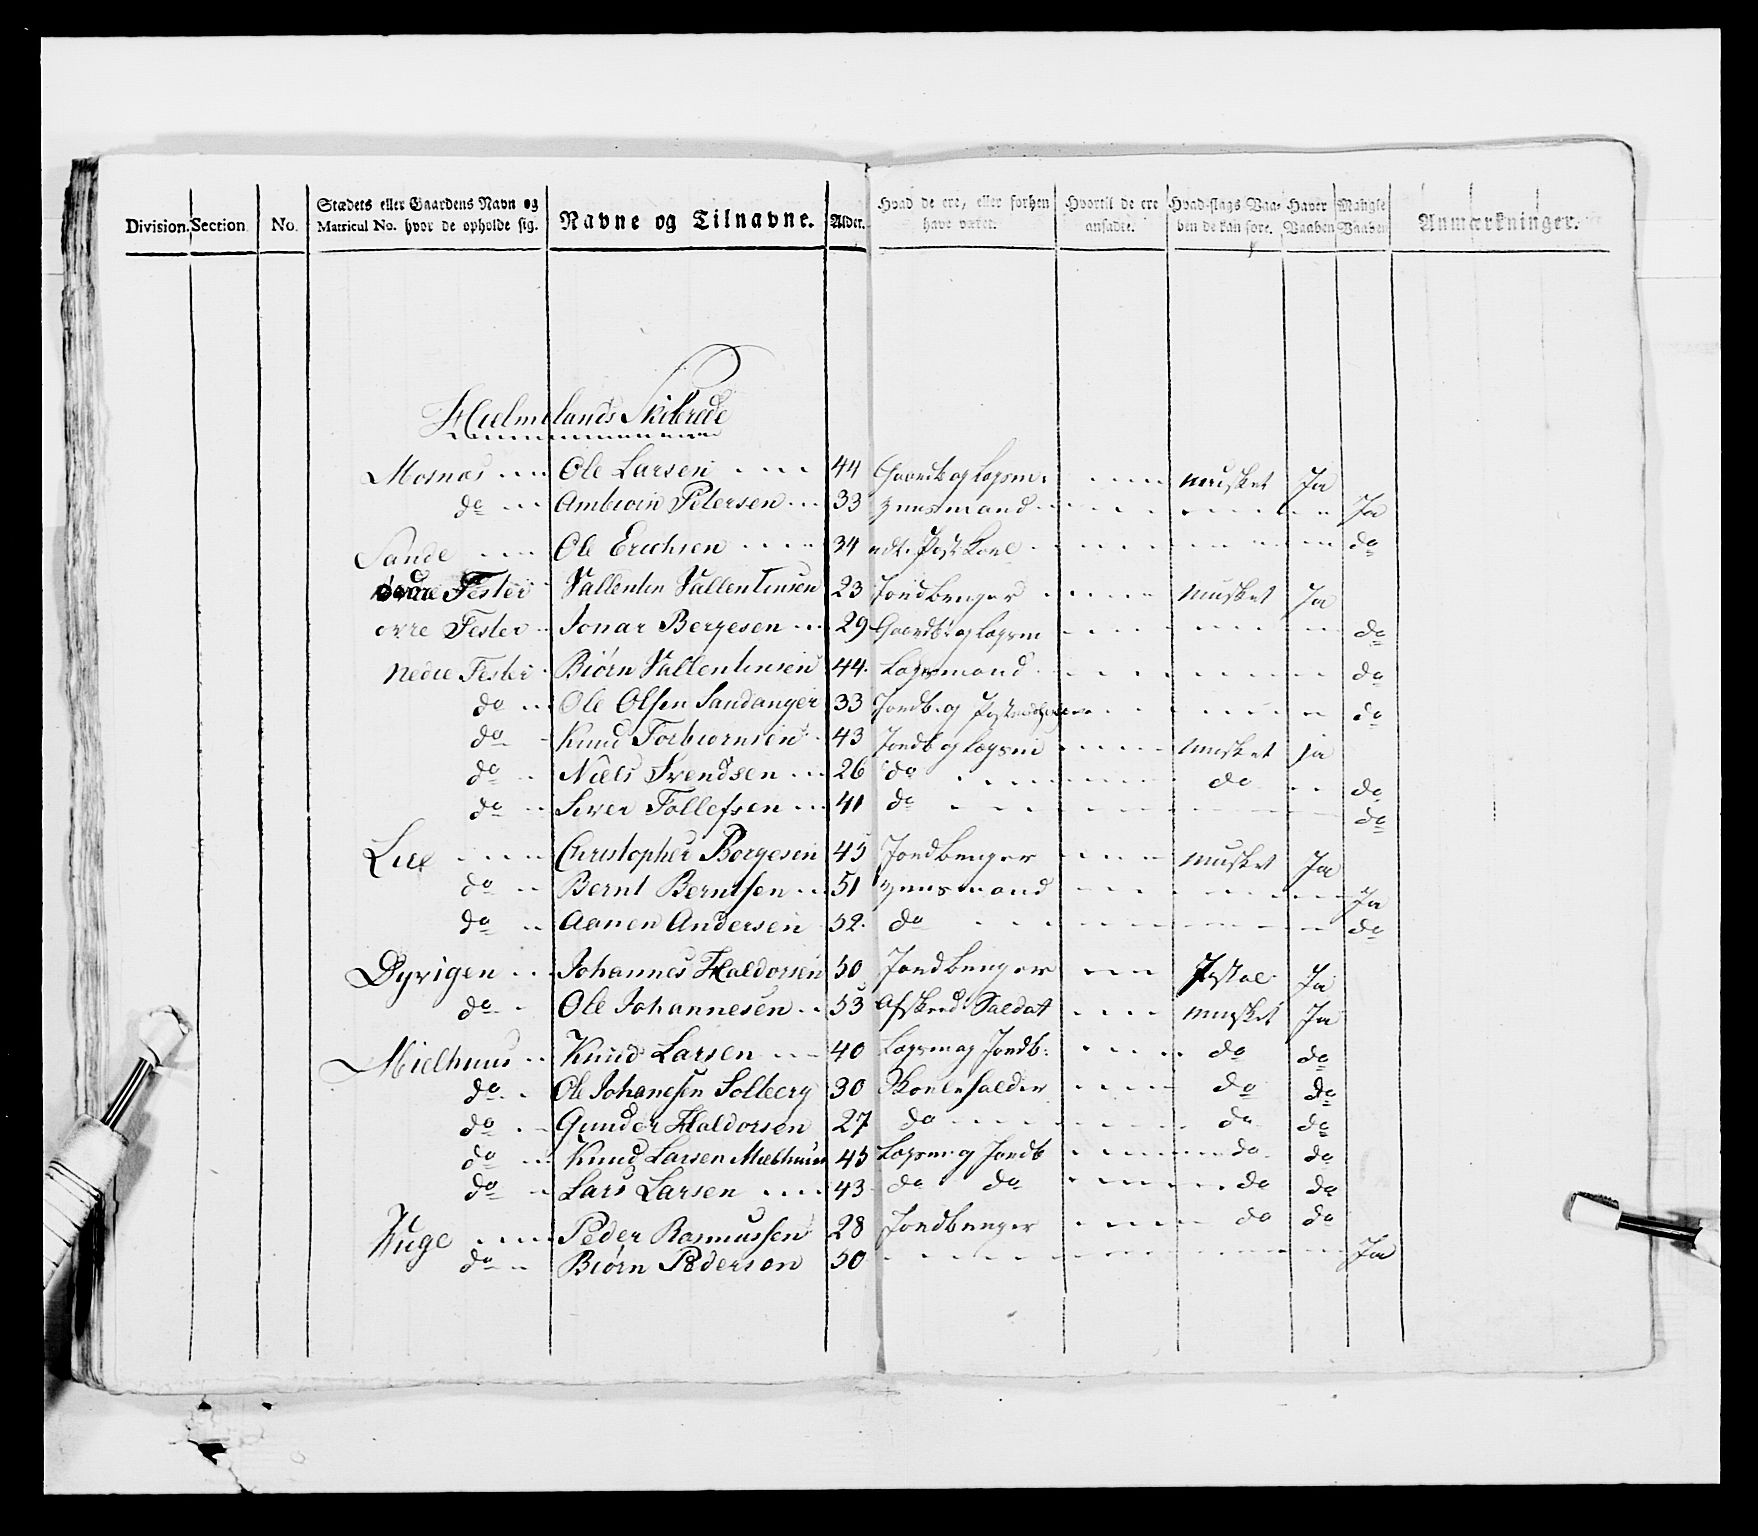 Division. Section No. Stædets eller Gaardens Navn og Matricul No. hvor de opholde sig. Navne og Tilnavne. Alder. Hvad de ere, eller forhen have været. Hvortil de ere ansatte. Hvad slags Vaaben de kan føre. Haver Vaaben Mangle Vaaben Anmærkninger.
Hielmelands Skibrede
Mosnæs Ole Larsen 44 Gaardb og Logsm: Musket Ja
do Ambroin Petersen 33 Huusmand Ja
Sande Ole Erichsen 34 Post Karl do
Fester Vallentin Vallentinsen 23 Jordbruger Musket Ja
øvre Fester Jonar Bergesen 29 Gaardb: og Logsm do
Nedre Fester Biørn Vallentinsen 44. Logsmand do
do Ole Olsen Sandanger 33 Jordb. og do
do Knud Torbiørnsen 43 Jordb og Logsm Musket ja
do Niels Svendsen 26 do do do
do Siver Tollefsen 41 do do
Lie Christopher Børgesen 45 Jordbruger Musket Ja
do Bernt Berntsen 51 Huusmand Ja
do Aanen Andersen 52. do do
Dyrigen Johannes Haldorsen 50 Jordbruger Pistol Ja
do Ole Johannesen 53 Afskeed Saldat Musket Ja
Mielhuus Knud Larsen 40 Logsm og Jordb: do do
do Ole Johanesen Solberg 30 do do
do Gunder Haldorsen 27 do do do
do Knud Larsen Mielhuus 45 Logsm og Jordb do do
do Lars Larsen 43 do do do do
Huge Peder Rasmussen 28 Jordbruger do do
do Biørn Pederson 50 Ja